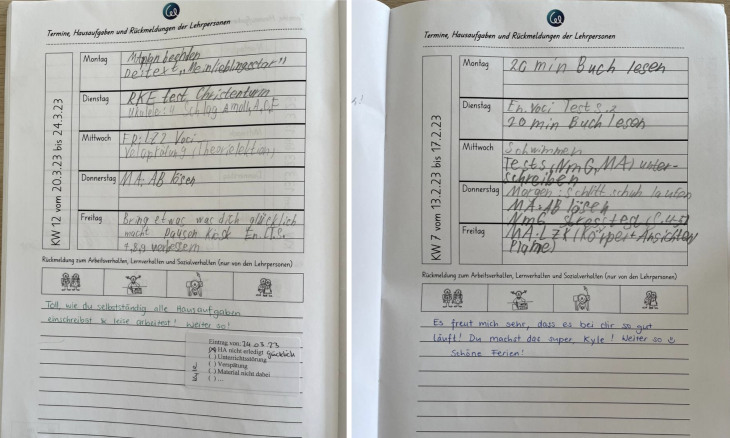 Termine, Hausaufgaben und Rückmeldungen der Lehrpersonen
KW 12 vom 20.3.23 bis 24.3.23
Montag
De text „Mein lieblingsstar"
Dienstag
RKE test, Christentum
Ukulele: Schlag Amoll, A, C, F
Mittwoch
Fr: 122 Voci
Veloprüfung (Theorielektion)
Donnerstag
MA: AB lösen
Freitag
Bring etwas was dich glücklich
macht Pausen Kiosk En.
Rückmeldung zum Arbeitsverhalten, Lernverhalten und Sozialverhalten (nur von den Lehrpersonen)
Toll, wie du selbstständig alle Hausaufgaben
einschreibst & leise arbeitest! Weiter so!
Eintrag von: 24.03.23
HA nicht erledigt glücklich
( ) Unterrichtsstörung
( ) Verspätung
( ) Material nicht dabei
( ) ...
Kyle
Termine, Hausaufgaben und Rückmeldungen der Lehrpersonen
KW 7 vom 13.2.23 bis 17.2.23
Montag
20 min Buch lesen
Dienstag
En. Voci Test S. 2
20 min Buch lesen
Mittwoch
Schwimmen
Tests (NmG, MA) unter-
schreiben
Donnerstag
Morgen: Schlittschuh laufen
MA: AB lösen
NmG stresstest
Freitag
MA: LZK (Körper + Ansichten
Pläne)
Rückmeldung zum Arbeitsverhalten, Lernverhalten und Sozialverhalten (nur von den Lehrpersonen)
Es freut mich sehr, dass es bei dir so gut
läuft! Du machst das super, Kyle! Weiter so ☺
Schöne Ferien!